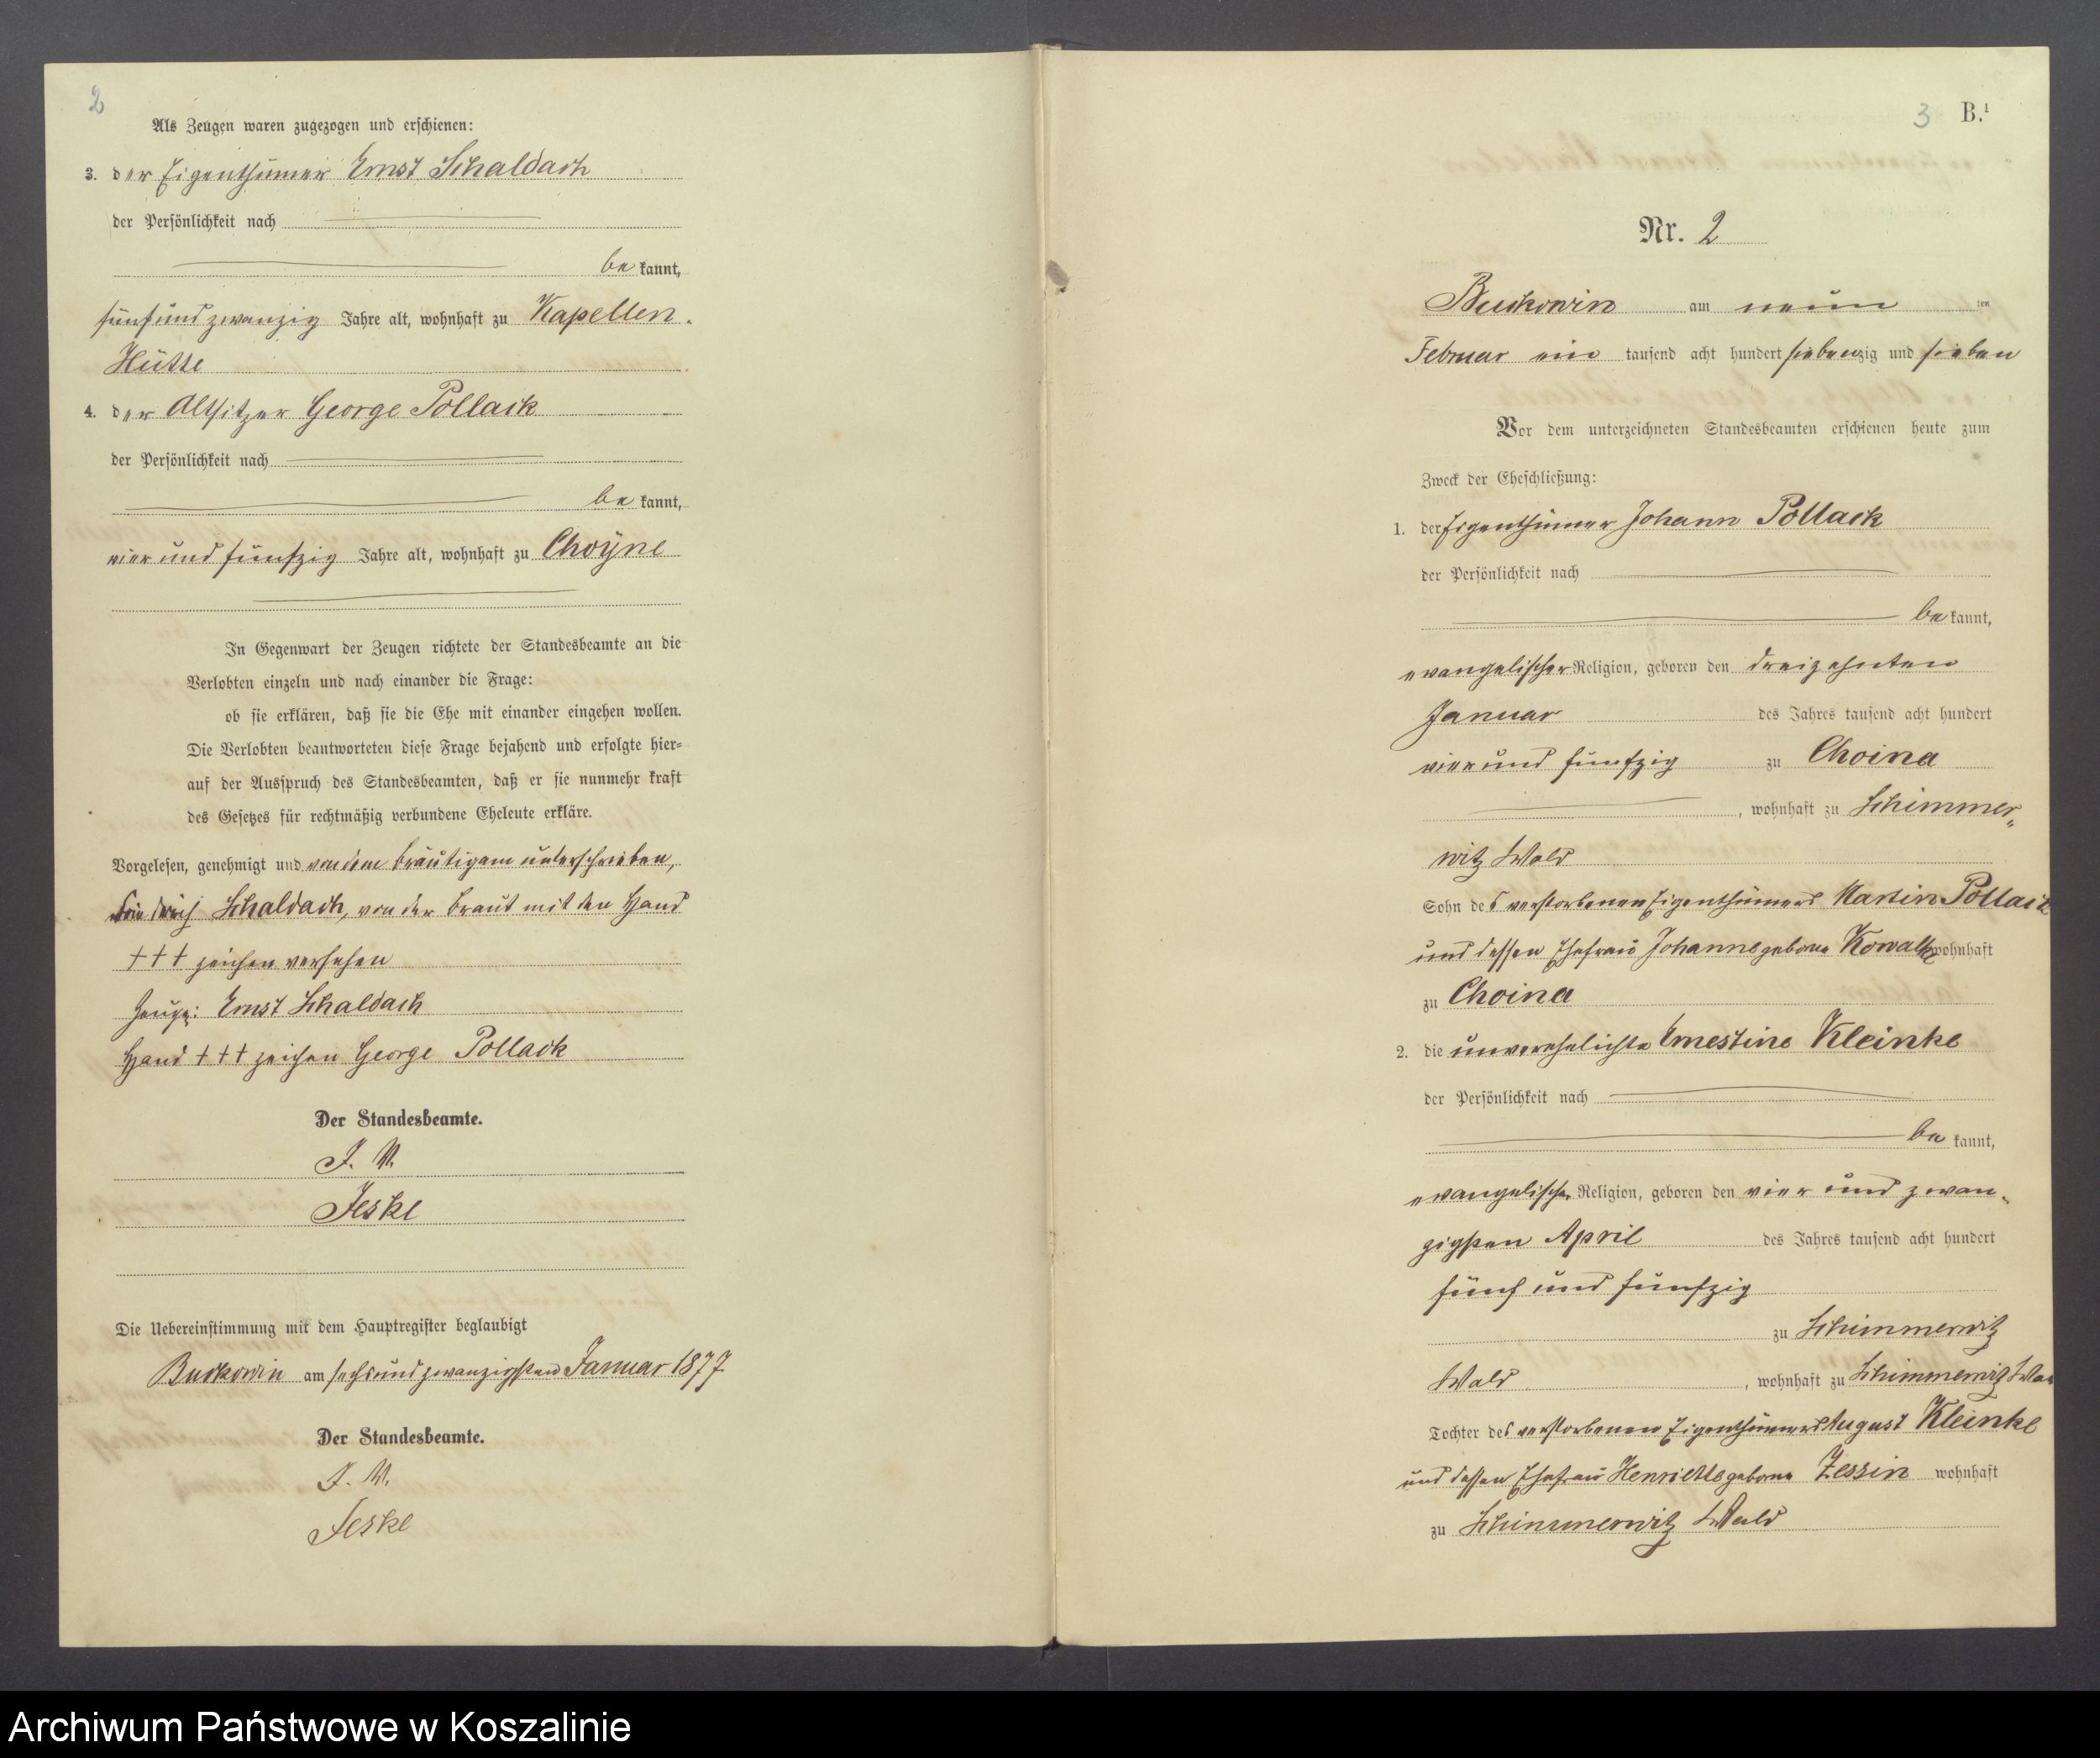 2
Als Zeugen waren zugezogen und erschienen:
3. der Eigenthümer Ernst Schaldach
der Persönlichkeit nach
be kannt,
fünf und zwanzig Jahre alt, wohnhaft zu Kapellen-
Hütte
4. der Altsitzer George Pollack
der Persönlichkeit nach
be kannt,
vier und fünfzig Jahre alt, wohnhaft zu Choyne
In Gegenwart der Zeugen richtete der Standesbeamte an die
Verlobten einzeln und nach einander die Frage:
ob sie erklären, daß sie die Ehe mit einander eingehen wollen.
Die Verlobten beantworteten diese Frage bejahend und erfolgte hier-
auf der Ausspruch des Standesbeamten, daß er sie nunmehr kraft
des Gesetzes für rechtmäßig verbundene Eheleute erkläre.
Vorgelesen, genehmigt und von dem Bräutigam unterschrieben,
Schaldach, von der Braut mit den Hand
+++ zeichen versehen
Zeuge: Ernst Schaldach
Hand +++ zeichen George Pollack
Der Standesbeamte.
J. V.
Jeske
Die Uebereinstimmung mit dem Hauptregister beglaubigt
Buckowin am sechs und zwanzigsten Januar 1877
Der Standesbeamte.
J. V.
Jeske
3 B.1
Nr. 2
Buckowin am neun ten
Februar ein tausend acht hundert siebenzig und sieben
Vor dem unterzeichneten Standesbeamten erschienen heute zum
Zweck der Eheschließung:
1. der Eigenthümer Johann Pollack
der Persönlichkeit nach
be kannt,
evangelischer Religion, geboren den dreizehnten
Januar des Jahres tausend acht hundert
vier und fünfzig zu Choina
, wohnhaft zu Schimmer-
witz Wald
Sohn des verstorbenen Eigenthümers Martin Pollack
und dessen Ehefrau Johanne geborne Kowalke wohnhaft
zu Choina
2. die unverehelichte Ernestine Kleinke
der Persönlichkeit nach
be kannt,
evangelischer Religion, geboren den vier und zwan-
zigsten April des Jahres tausend acht hundert
fünf und fünfzig
zu Schimmerwitz
Wald, wohnhaft zu Schimmerwitz Wa
Tochter des verstorbenen Eigenthümers August Kleinke
und dessen Ehefrau Henriette geborne Zessin wohnhaft
zu Schimmerwitz Wald
Archiwum Państwowe w Koszalinie